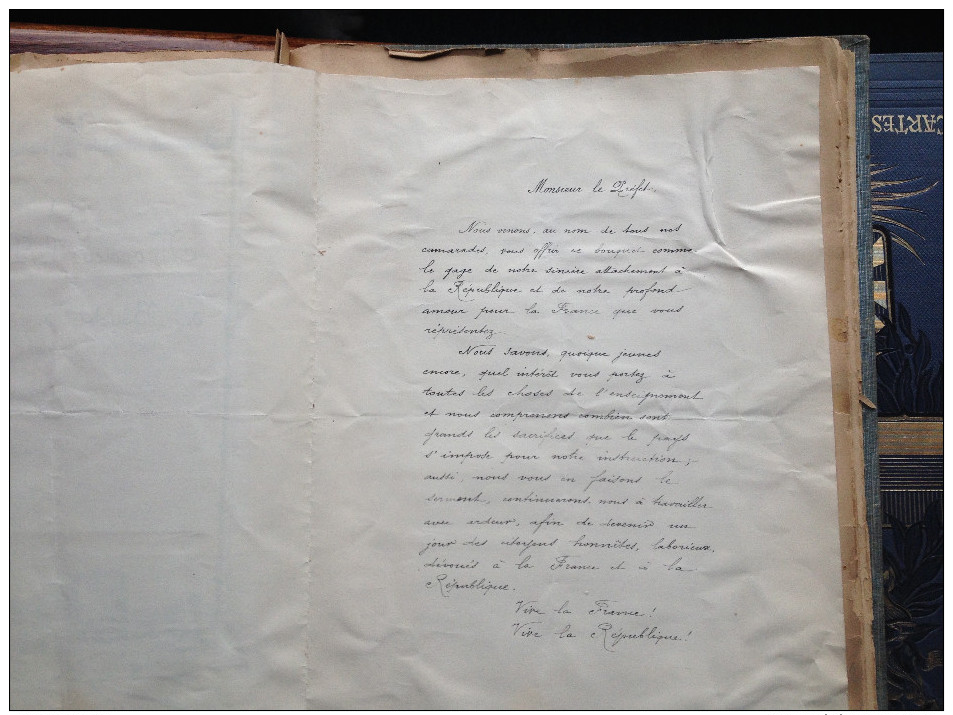 Monsieur le Préfet.
Nous venons, au nom de tous nos
camarades, vous offrir ce bouquet comme
le gage de notre sincère attachement à
la République et de notre profond
amour pour la France que vous
réprésentez.
Nous savons, quoique jeunes
encore, quel intérêt vous portez à
toutes les choses de l'enseignement
et nous comprenons combien sont
grands les sacrifices que le pays
s'impose pour notre instruction ;
aussi, nous vous en faisons le
serment, continuerons nous à travailler
avec ardeur, afin de devenir un
jour des citoyens honnêtes, laborieux,
dévoués à la France et à la
République.
Vive la France !
Vive la République !
CARTES